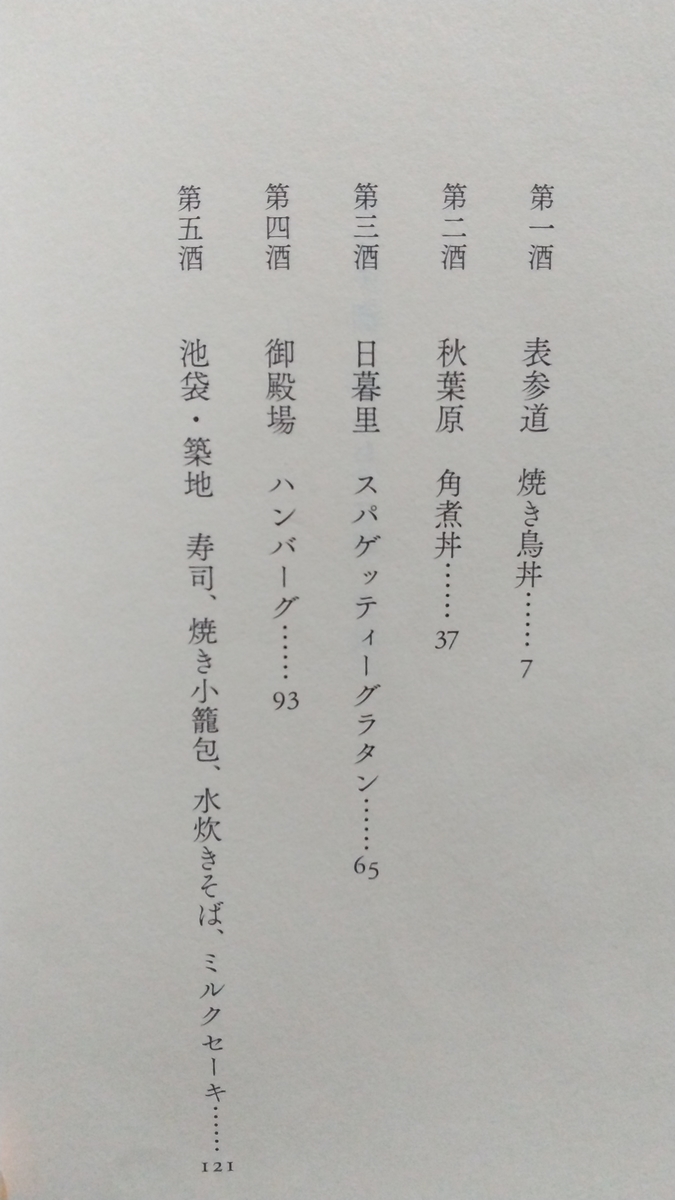 第一酒　表参道　焼き鳥丼……7
第二酒　秋葉原　角煮丼……37
第三酒　日暮里　スパゲッティーグラタン……65
第四酒　御殿場　ハンバーグ……93
第五酒　池袋・築地　寿司、焼き小籠包、水炊きそば、ミルクセーキ……121